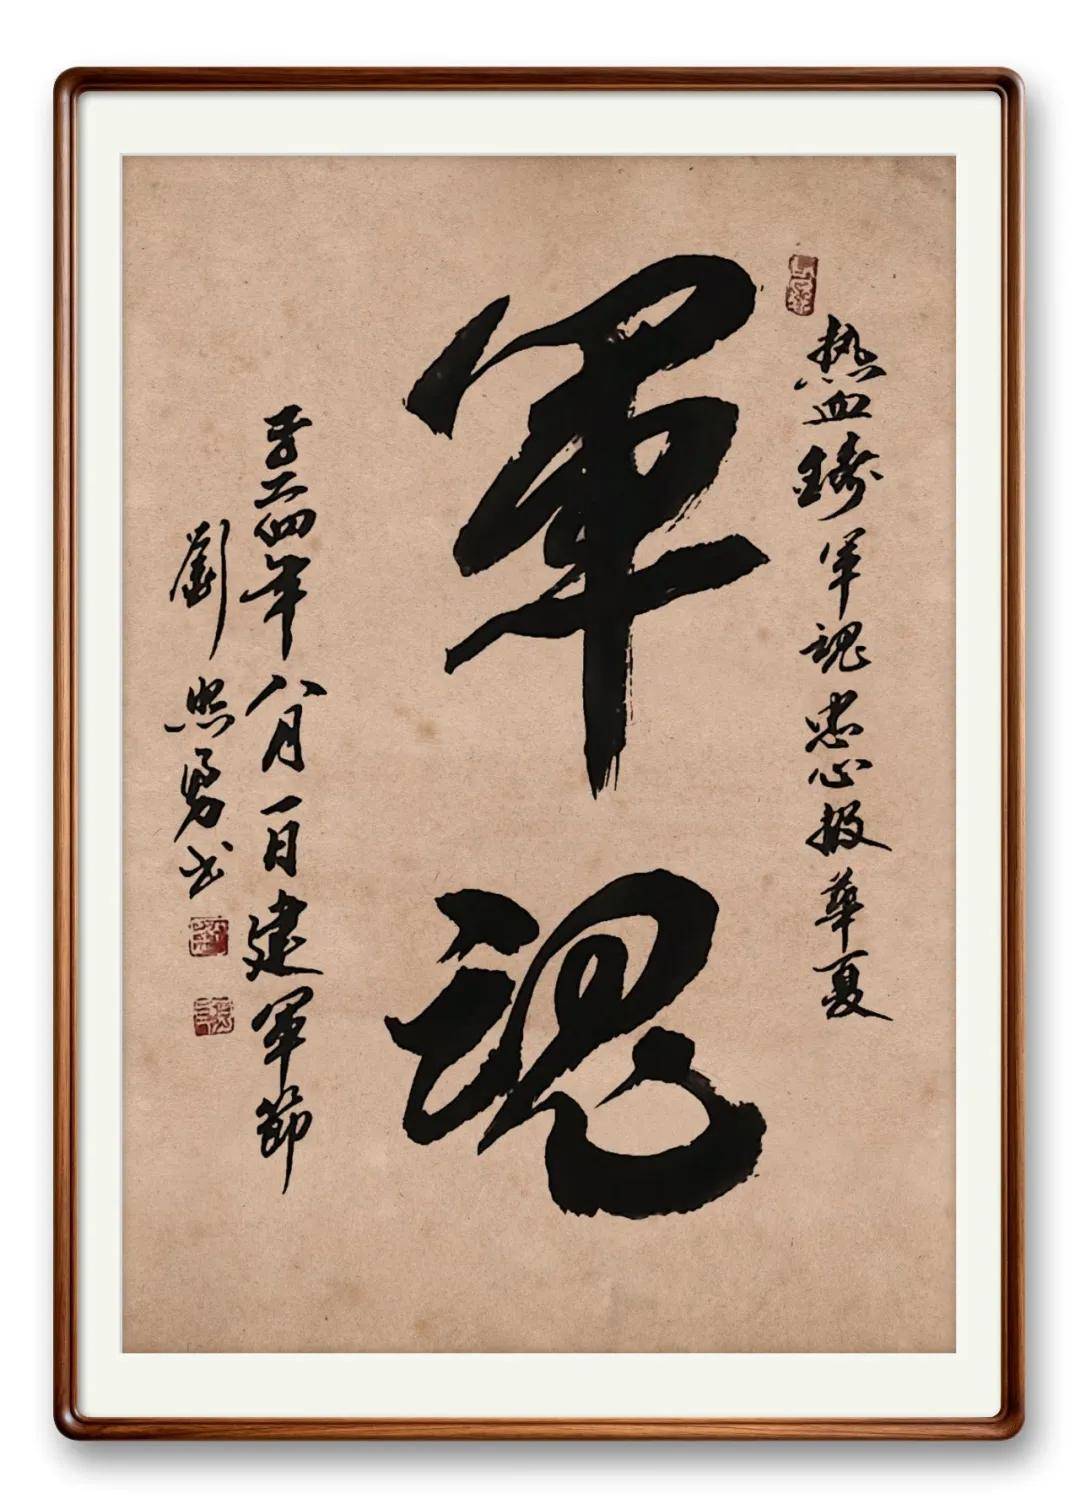 热血鑄軍魂忠心报華夏
軍魂
二〇二四年八月一日建軍節
劉照勇书